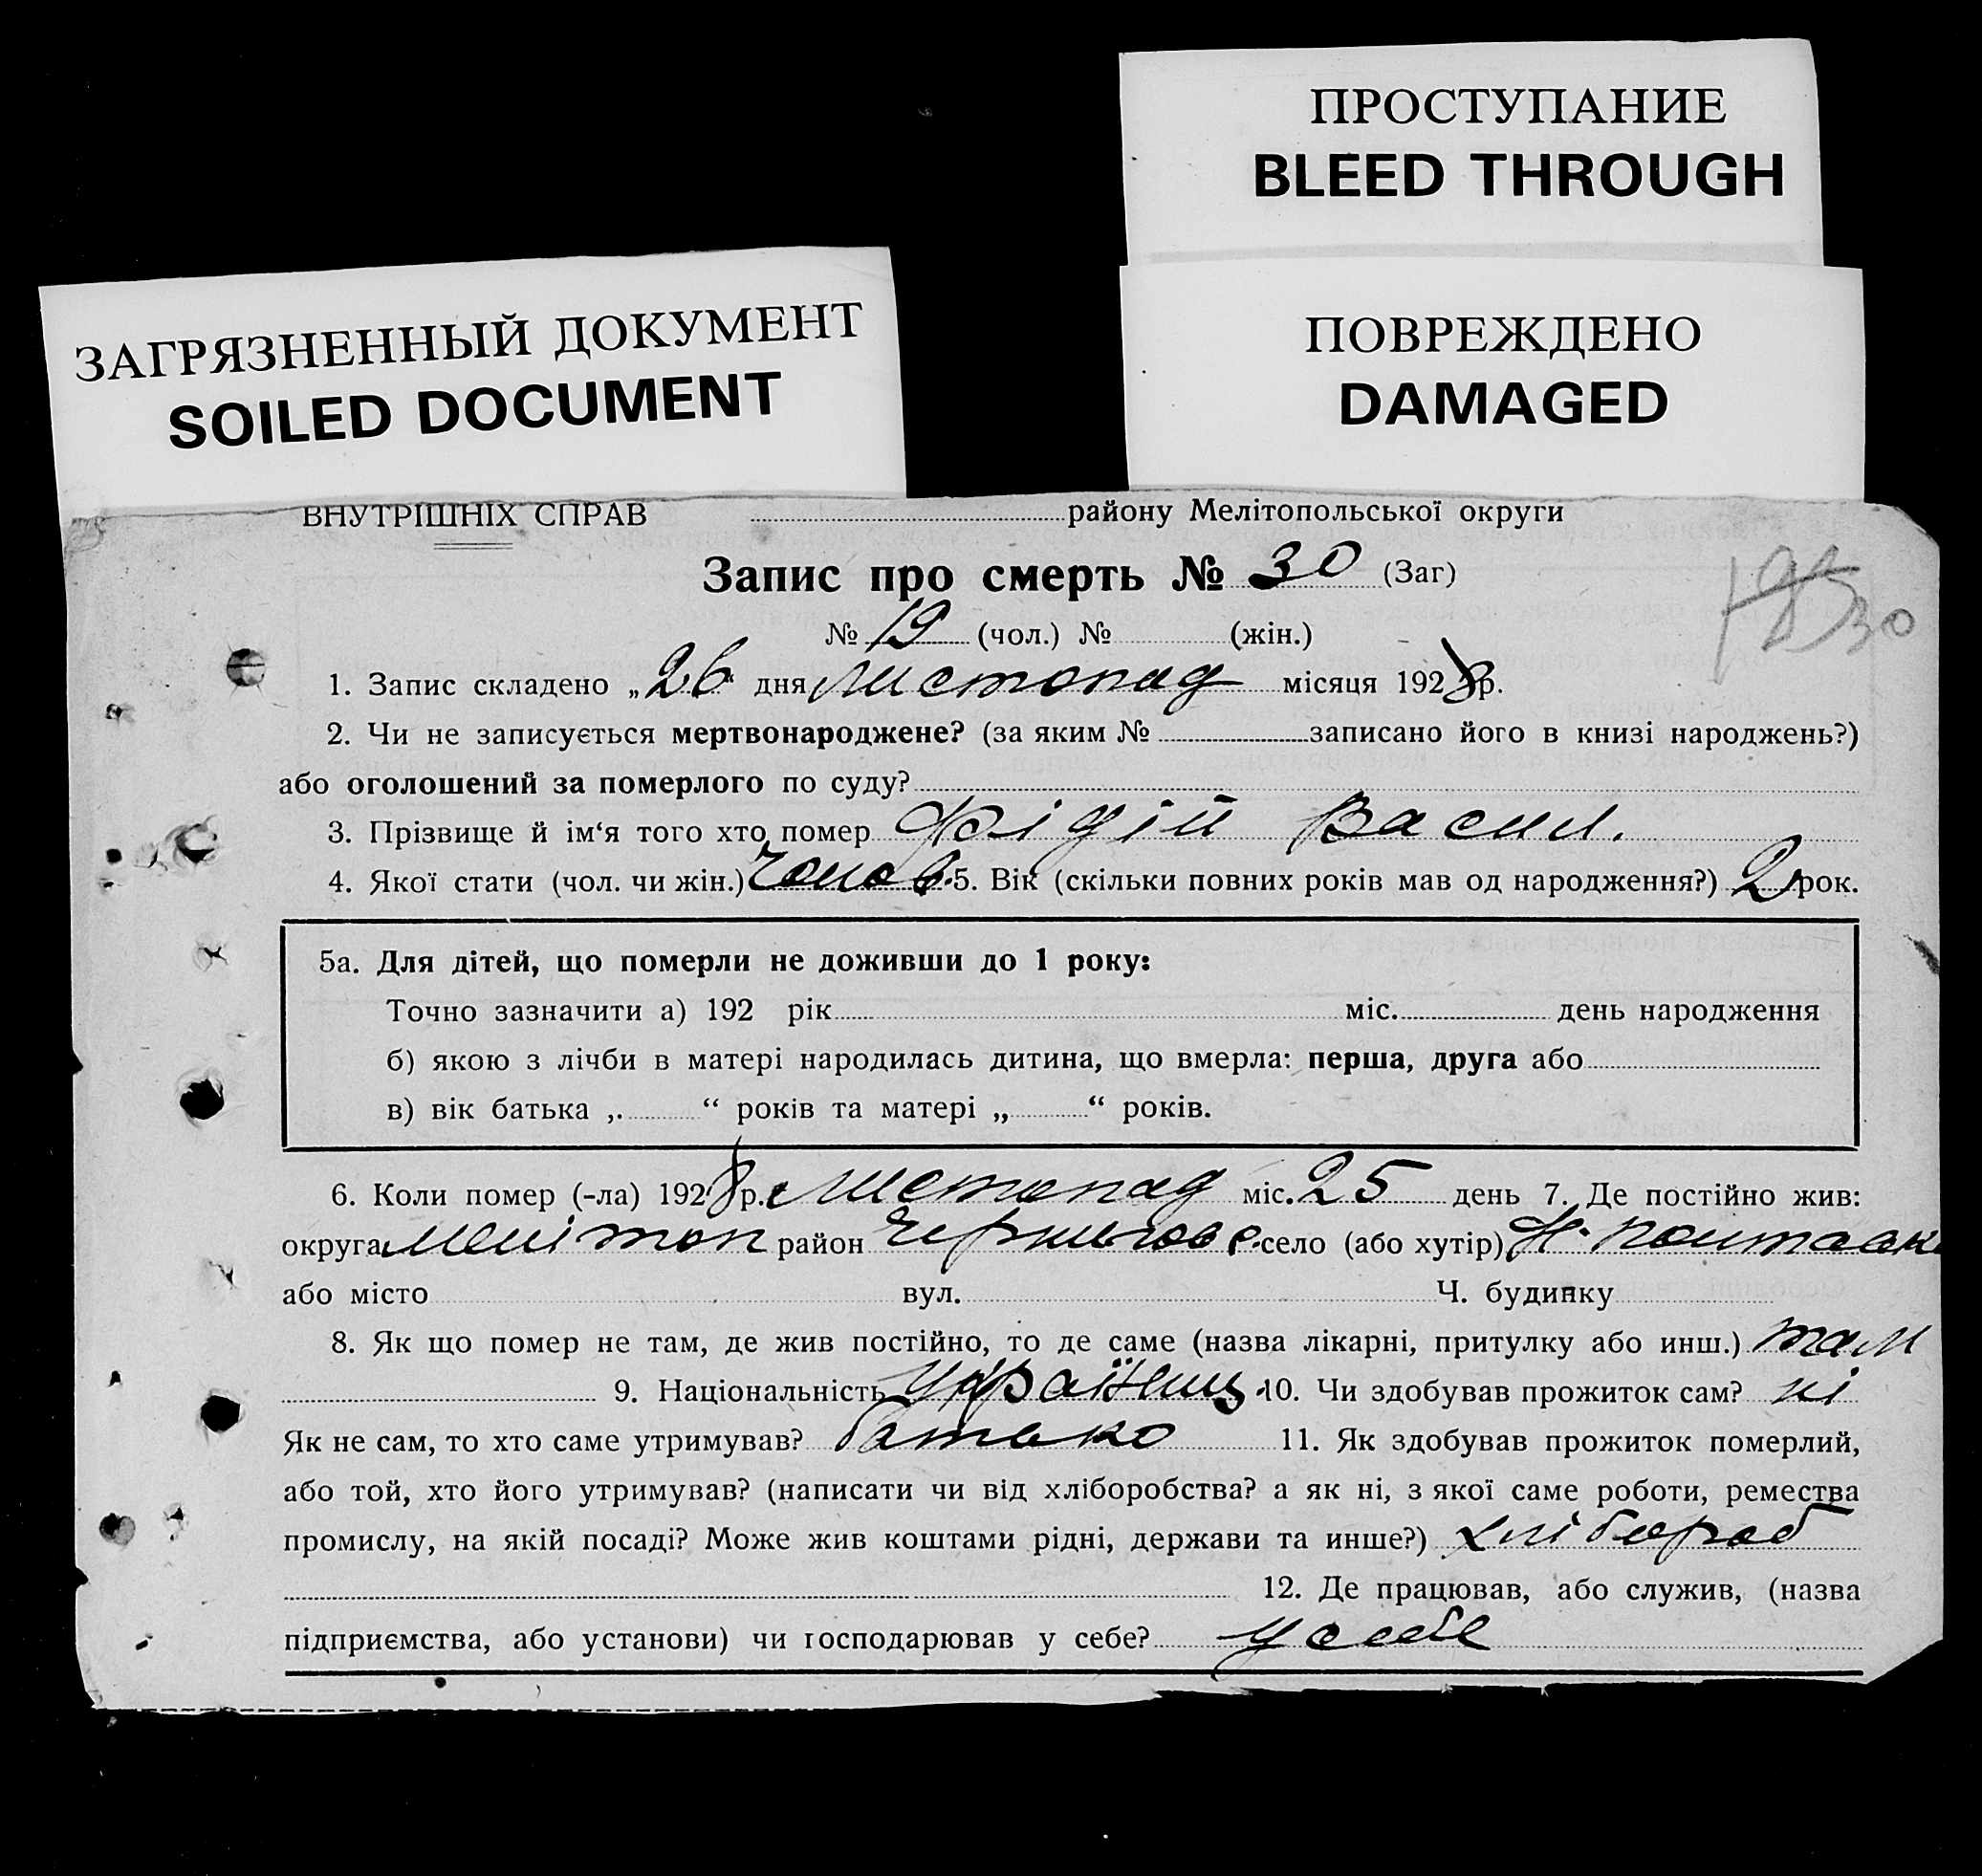 ПРОСТУПАНИЕ
BLEED THROUGH
ЗАГРЯЗНЕННЫЙ ДОКУМЕНТ
SOILED DOCUMENT
ПОВРЕЖДЕНО
DAMAGED
ВНУТРІШНІХ СПРАВ району Мелітопольської округи
Запис про смерть № 30 (Заг)
№ 19 (чол.) № (жін.)
30
1. Запис складено „26“ дня листопад місяця 1928 р.
2. Чи не записується мертвонароджене? (за яким № записано його в книзі народжень?)
або оголошений за померлого по суду?
3. Прізвище й ім‘я того хто помер Фідій Васил.
4. Якої стати (чол. чи жін.) Чолов. 5. Вік (скільки повних років мав од народження?) 2 рок.
5а. Для дітей, що померли не доживши до 1 року:
Точно зазначити а) 192 рік міс. день народження
б) якою з лічби в матері народилась дитина, що вмерла: перша, друга або
в) вік батька „ “ років та матері „ “ років.
6. Коли помер (-ла) 1928 р. листопад міс. 25 день 7. Де постійно жив:
округа Мелітоп район Чернигов р. село (або хутір) Н-Полтавк
або місто вул. Ч. будинку
8. Як що помер не там, де жив постійно, то де саме (назва лікарні, притулку або инш.) там
9. Національність Українец. 10. Чи здобував прожиток сам? ні
Як не сам, то хто саме утримував? батько 11. Як здобував прожиток померлий,
або той, хто його утримував? (написати чи від хліборобства? а як ні, з якої саме роботи, ремества
промислу, на якій посаді? Може жив коштами рідні, держави та инше?) хлібороб
12. Де працював, або служив, (назва
підприємства, або установи) чи господарював у себе? у себе